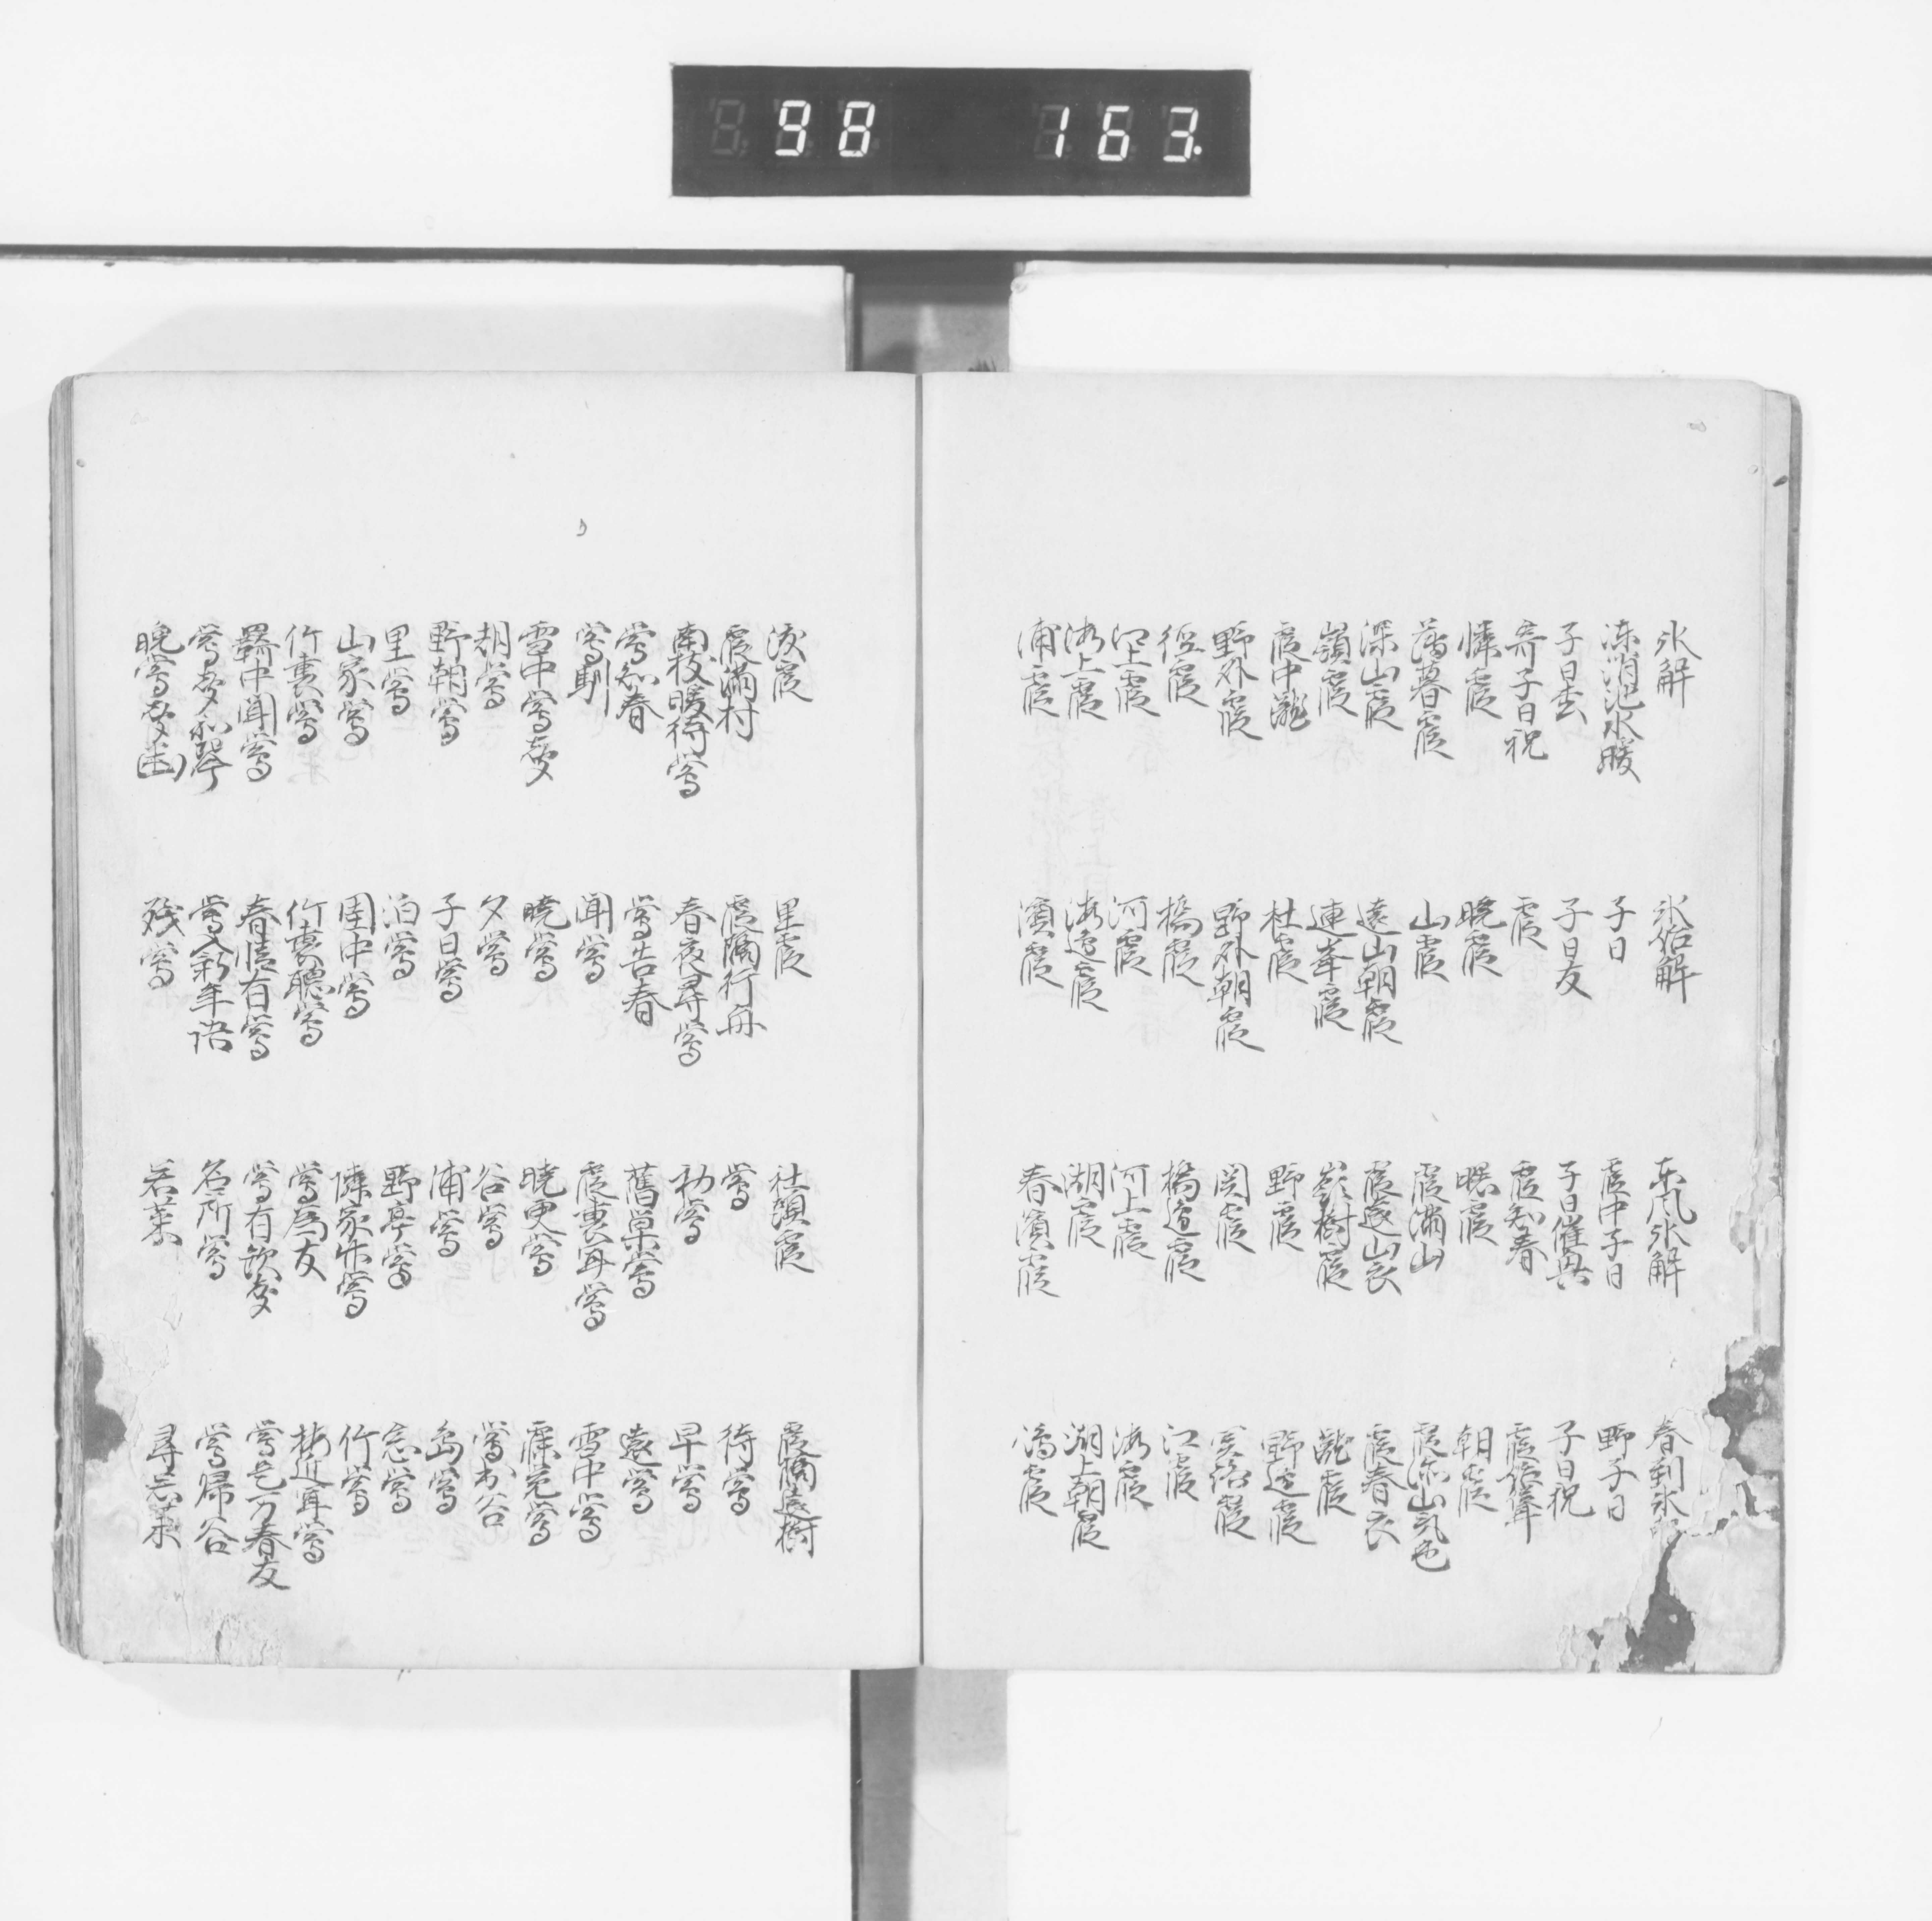 98 163.
氷解 氷始解 東風氷解 春到氷
凍消池水暖 子日 霞中子日 野子日
子日松 子日友 子日催興 子日祝
寄子日祝 霞 霞知春
憐霞 暁霞 曙霞 朝霞
薄暮霞 山霞 霞満山 霞添山気色
深山霞 遠山朝霞 霞遂山衣 霞春衣
嶺霞 連峯霞 嶺樹霞 瀧霞
霞中瀧 杜霞 野霞 野遊霞
野外霞 野外朝霞 関霞 関路霞
径霞 橋霞 橋辺霞 江霞
江上霞 河霞 河上霞 海霞
海上霞 海辺霞 湖霞 湖上朝霞
浦霞 濱霞 春濱霞 嶋霞
渡霞 里霞 社頭霞 霞隔遠樹
霞満村 霞隔行舟 鶯 待鶯
南枝暖待鶯 春夜尋鶯 初鶯 早鶯
鶯知春 鶯告春 舊巣鶯 遠鶯
鶯馴 聞鶯 霞裏耳鶯 雪中鶯
雪中鶯聲 暁鶯 暁更鶯 霧苑鶯
朝鶯 夕鶯 谷鶯 鶯出谷
野朝鶯 子日鶯 浦鶯 島鶯
里鶯 泊鶯 野亭鶯 窓鶯
山家鶯 園中鶯 憐家竹鶯 竹鶯
竹裏鶯 竹裏聴鶯 鶯為友 梅近耳鶯
羇中聞鶯 春情有鶯 鶯有歓聲 鶯是万春友
鶯聲和琴 鶯入新年語 名所鶯 鶯帰谷
晩鶯聲幽 残鶯 若菜 尋若菜